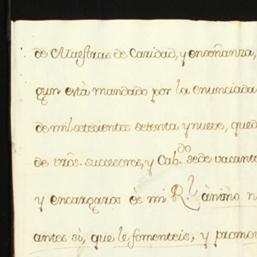 de Maestras de Caridad, y enseñanza,
gun està mandado por la enunciada
de mil setecientos setenta y nueve, qued
de vrôs. sucesores, y Cab.do sede vacante
y encargaros es mi R.l ànimo n
antes sì, que le fomenteis, y promo